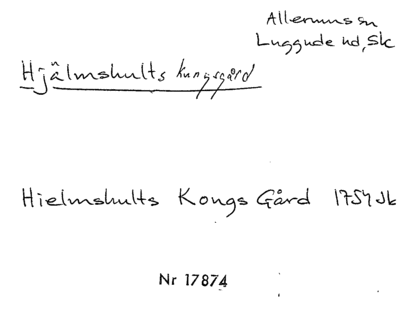 Allerums sn
Luggude hd, Sk
Hjälmshults kungsgård
Hielmshults Kongs Gård 1754 Jb
Nr 17874